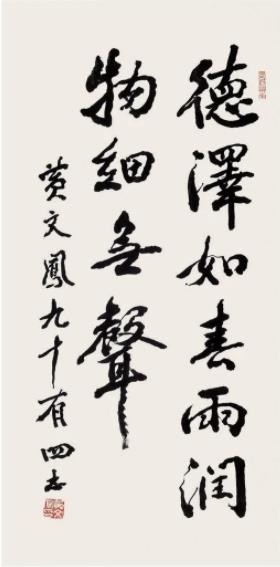 德澤如春雨潤
物細無聲
黄文鳳九十有四書